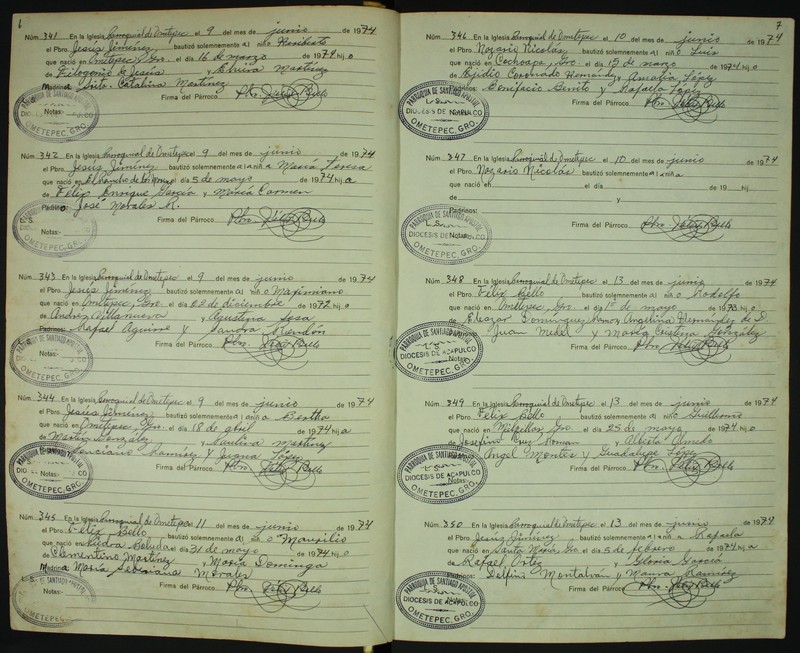 6
Núm. 341 En la Iglesia Parroquial de Ometepec el 9 del mes de junio de 1974
el Pbro. Jesús Jiménez bautizó solemnemente a l niño Heriberto
que nació en Ometepec, Gro. el día 16 de marzo de 1974 hijo
de Filogonio de Jesús y Elvira Martínez
Madrina Srita. Catalina Martínez
Firma del Párroco Pbro. Félix Bello
PARROQUIA DE SANTIAGO APOSTOL
Notas:
OMETEPEC, GRO.
Núm. 342 En la Iglesia Parroquial de Ometepec el 9 del mes de junio de 1974
el Pbro. Jesús Jiménez bautizó solemnemente a l a niñ a María Teresa
que nació en el día 5 de mayo de 1974 hij a
de Félix Enrique García y María Carmen
Padrino José Morales M.
Firma del Párroco Pbro. Félix Bello
Notas:
OMETEPEC, GRO.
Núm. 343 En la Iglesia Parroquial de Ometepec el 9 del mes de junio de 1974
el Pbro. Jesús Jiménez bautizó solemnemente a l niñ o Maximiano
que nació en Ometepec, Gro. el día 23 de diciembre de 1972 hij o
de Andrés Villanueva y Agustina Sosa
Padrinos: Rafael Aguirre y Sandra Rendón
Firma del Párroco Pbro. Félix Bello
Notas:
OMETEPEC, GRO.
Núm. 344 En la Iglesia Parroquial de Ometepec el 9 del mes de junio de 1974
el Pbro. Jesús Jiménez bautizó solemnemente a l a niñ a Bertha
que nació en Ometepec, Gro. el día 18 de abril de 1974 hij a
de Martín González y Paulina Martínez
Ramírez y Juana López
Firma del Párroco Pbro. Félix Bello
PARROQUIA DE SANTIAGO APOSTOL
Notas:
OMETEPEC, GRO.
Núm. 345 En la Iglesia Parroquial de Ometepec 11 del mes de junio de 1974
el Pbro. Félix Bello bautizó solemnemente a l niñ o Maurilio
que nació en Piedra Boluda el día 31 de mayo de 1974 hij o
de Clementino Martínez y María Dominga
Madrina María Morales
Firma del Párroco Pbro. Félix Bello
Notas:
OMETEPEC, GRO.
7
Núm. 346 En la Iglesia Parroquial de Ometepec el 10 del mes de junio de 1974
el Pbro. Nazario Nicolás bautizó solemnemente a l niñ o Luis
que nació en Cochoapa, Gro. el día 15 de marzo de 1974 hij o
de Egidio Coronado Hernández y Amalia López
Padrinos: Bonifacio Benito y Rafaela López
Firma del Párroco Pbro. Félix Bello
PARROQUIA DE SANTIAGO APOSTOL
DIOCESIS DE ACAPULCO
Notas:
OMETEPEC, GRO.
Núm. 347 En la Iglesia Parroquial de Ometepec el 10 del mes de junio de 1974
el Pbro. Nazario Nicolás bautizó solemnemente a l niñ
que nació en el día de 19 hij
de y
Padrinos:
Firma del Párroco Pbro. Félix Bello
PARROQUIA DE SANTIAGO APOSTOL
DIOCESIS DE ACAPULCO
Notas:
OMETEPEC, GRO.
Núm. 348 En la Iglesia Parroquial de Ometepec el 13 del mes de junio de 1974
el Pbro. Félix Bello bautizó solemnemente a l niñ o Rodolfo
que nació en Ometepec, Gro. el día 1º de mayo de 1973 hij o
de Eleazar Domínguez y Angelina Hernández de D.
Juan Medel y María Cristina González
Firma del Párroco Pbro. Félix Bello
PARROQUIA DE SANTIAGO APOSTOL
DIOCESIS DE ACAPULCO
Notas:
OMETEPEC, GRO.
Núm. 349 En la Iglesia Parroquial de Ometepec el 13 del mes de junio de 1974
el Pbro. Félix Bello bautizó solemnemente a l niñ o Guillermo
que nació en Milpillas, Gro. el día 25 de mayo de 1974 hij o
de Josefino Cruz Roman y Alberta Olmedo
Angel Montes y Guadalupe López
Firma del Párroco Pbro. Félix Bello
PARROQUIA DE SANTIAGO APOSTOL
DIOCESIS DE ACAPULCO
Notas:
OMETEPEC, GRO.
Núm. 350 En la Iglesia Parroquial de Ometepec el 13 del mes de junio de 1974
el Pbro. Jesús Jiménez bautizó solemnemente a l a niñ a Rafaela
que nació en Santa María, Gro. el día 5 de febrero de 1974 hij a
de Rafael Ortiz y Gloria García
Padrinos: Delfino Montalvan y Maura Ramírez
Firma del Párroco Pbro. Félix Bello
PARROQUIA DE SANTIAGO APOSTOL
DIOCESIS DE ACAPULCO
Notas:
OMETEPEC, GRO.